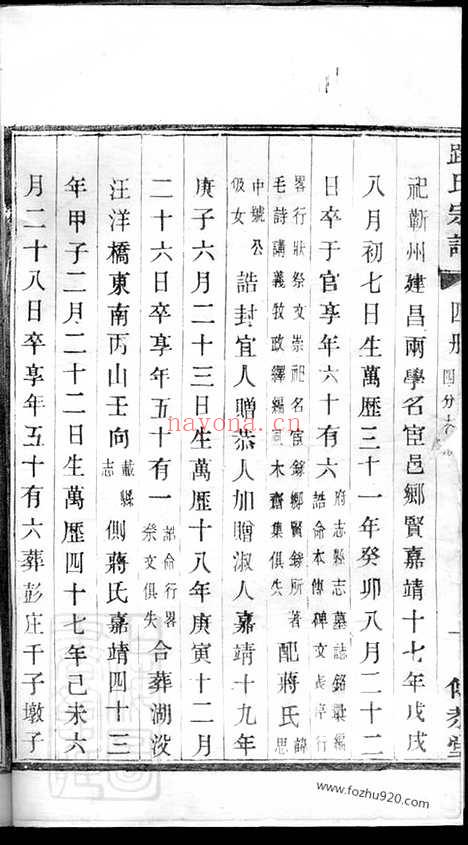 氏宗譜 四冊 四分
祀蘄州建昌兩學名宦邑鄉賢嘉靖十七年戊戌
八月初七日生萬歷三十一年癸卯八月二十二
日卒于官享年六十有六 府志縣志墓誌銘彙編 誥命本傳碑文行
畧行狀祭文崇祀名宦錄鄉賢錄所著 毛詩講義牧政繹編木齋集俱失 配蔣氏 思
中號公伋女 誥封宜人贈恭人加贈淑人嘉靖十九年
庚子六月二十三日生萬歷十八年庚寅十二月
二十六日卒享年五十有一 誥命行畧祭文俱失 合葬湖沒
汪洋橋東南丙山壬向 載縣志 側蔣氏嘉靖四十三
年甲子二月二十二日生萬歷四十七年己未六
月二十八日卒享年五十有六葬彭庄千子墩子
nayona.cn
www.fozhu920.com